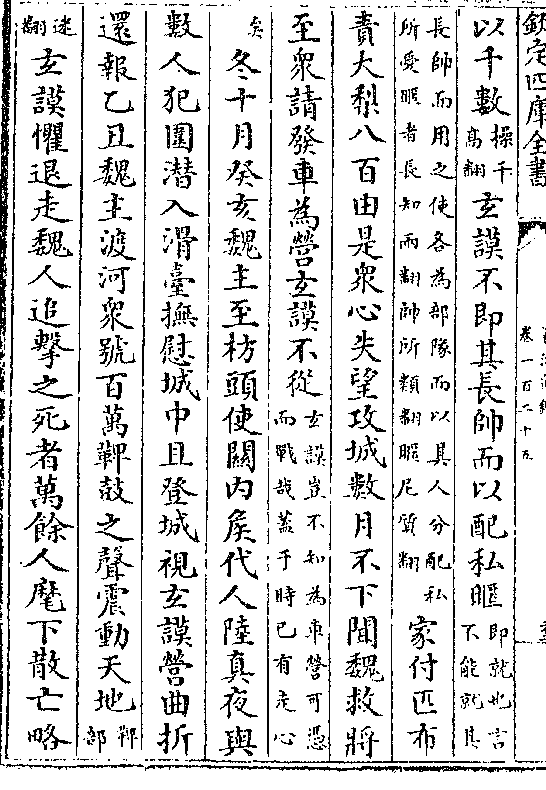 欽定四庫全書
卷一百二十五
以千數操千高翻玄謨不即其長帥而以配私暱即就也言不能就其
長帥而用之使各為部隊而以其人分配私所愛暱者長知兩翻帥所類翻暱尼質翻家付匹布
責大梨八百由是衆心失望攻城數月不下聞魏救將
至衆請發車為營玄謨不從玄謨豈不知為車營可憑而戰哉蓋于時已有走心
矣冬十月癸亥魏主至枋頭使關内侯代人陸真夜與
數人犯圍潛入滑臺撫慰城中且登城視玄謨營曲折
還報乙丑魏主渡河衆號百萬鞞鼓之聲震動天地鞞部
迷翻玄謨懼退走魏人追擊之死者萬餘人麾下散亡略